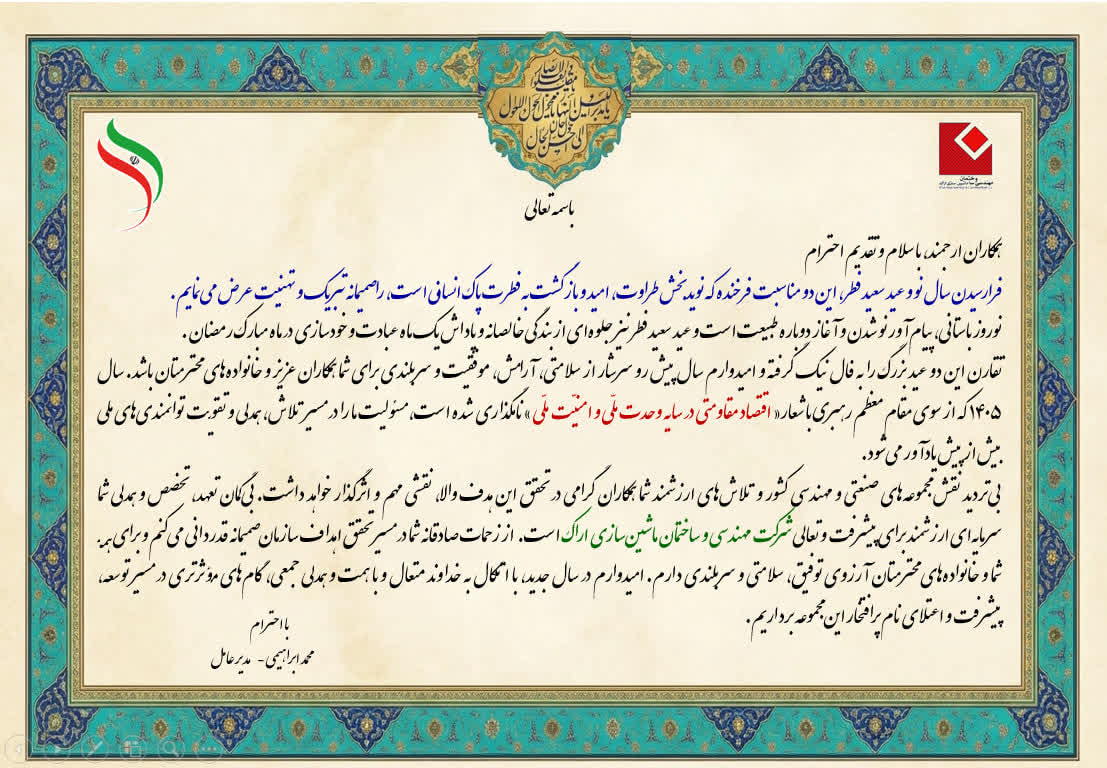 یا مقلب القلوب و الابصار
یا مدبر اللیل و النهار
یا محول الحول و الاحوال
حول حالنا
الی احسن الحال
و ختمان
باسمه تعالی
همکاران ارجمند، با سلام و تقدیم احترام
فرارسیدن سال نو و عید سعید فطر، این دو مناسبت فرخنده که نوید بخش طراوت، امید و بازگشت به فطرت پاک انسانی است، را صمیمانه تبریک و تهنیت عرض می نمایم .
نوروز باستانی، پیام آور نو شدن و آغاز دوباره طبیعت است و عید سعید فطر نیز جلوه ای از بندگی خالصانه و پاداش یک ماه عبادت و خودسازی در ماه مبارک رمضان .
تقارن این دو عید بزرگ را به فال نیک گرفته و امیدوارم سال پیش رو سرشار از سلامتی، آرامش، موفقیت و سربلندی برای شما همکاران عزیز و خانواده های محترمتان باشد. سال
۱۴۰۵ که از سوی مقام معظم رهبری با شعار « اقتصاد مقاومتی در سایه وحدت ملّی و امنیّت ملّی » نامگذاری شده است، مسئولیت ما را در مسیر تلاش، همدلی و تقویت توانمندی های ملی
بیش از پیش یادآور می شود.
بی تردید نقش مجموعه های صنعتی و مهندسی کشور و تلاش های ارزشمند شما همکاران گرامی در تحقق این هدف والا، نقشی مهم و اثرگذار خواهد داشت. بی گمان تعهد، تخصص و همدلی شما
سرمایه ای ارزشمند برای پیشرفت و تعالی شرکت مهندسی و ساختمان ماشین سازی اراک است. از زحمات صادقانه شما در مسیر تحقق اهداف سازمان صمیمانه قدردانی می کنم و برای همه
شما و خانواده های محترمتان آرزوی توفیق، سلامتی و سربلندی دارم . امیدوارم در سال جدید، با اتکال به خداوند متعال و با همت و همدلی جمعی، گام های مؤثرتری در مسیر توسعه،
پیشرفت و اعتلای نام پرافتخار این مجموعه برداریم .
با احترام
محمد ابراهیمی - مدیرعامل